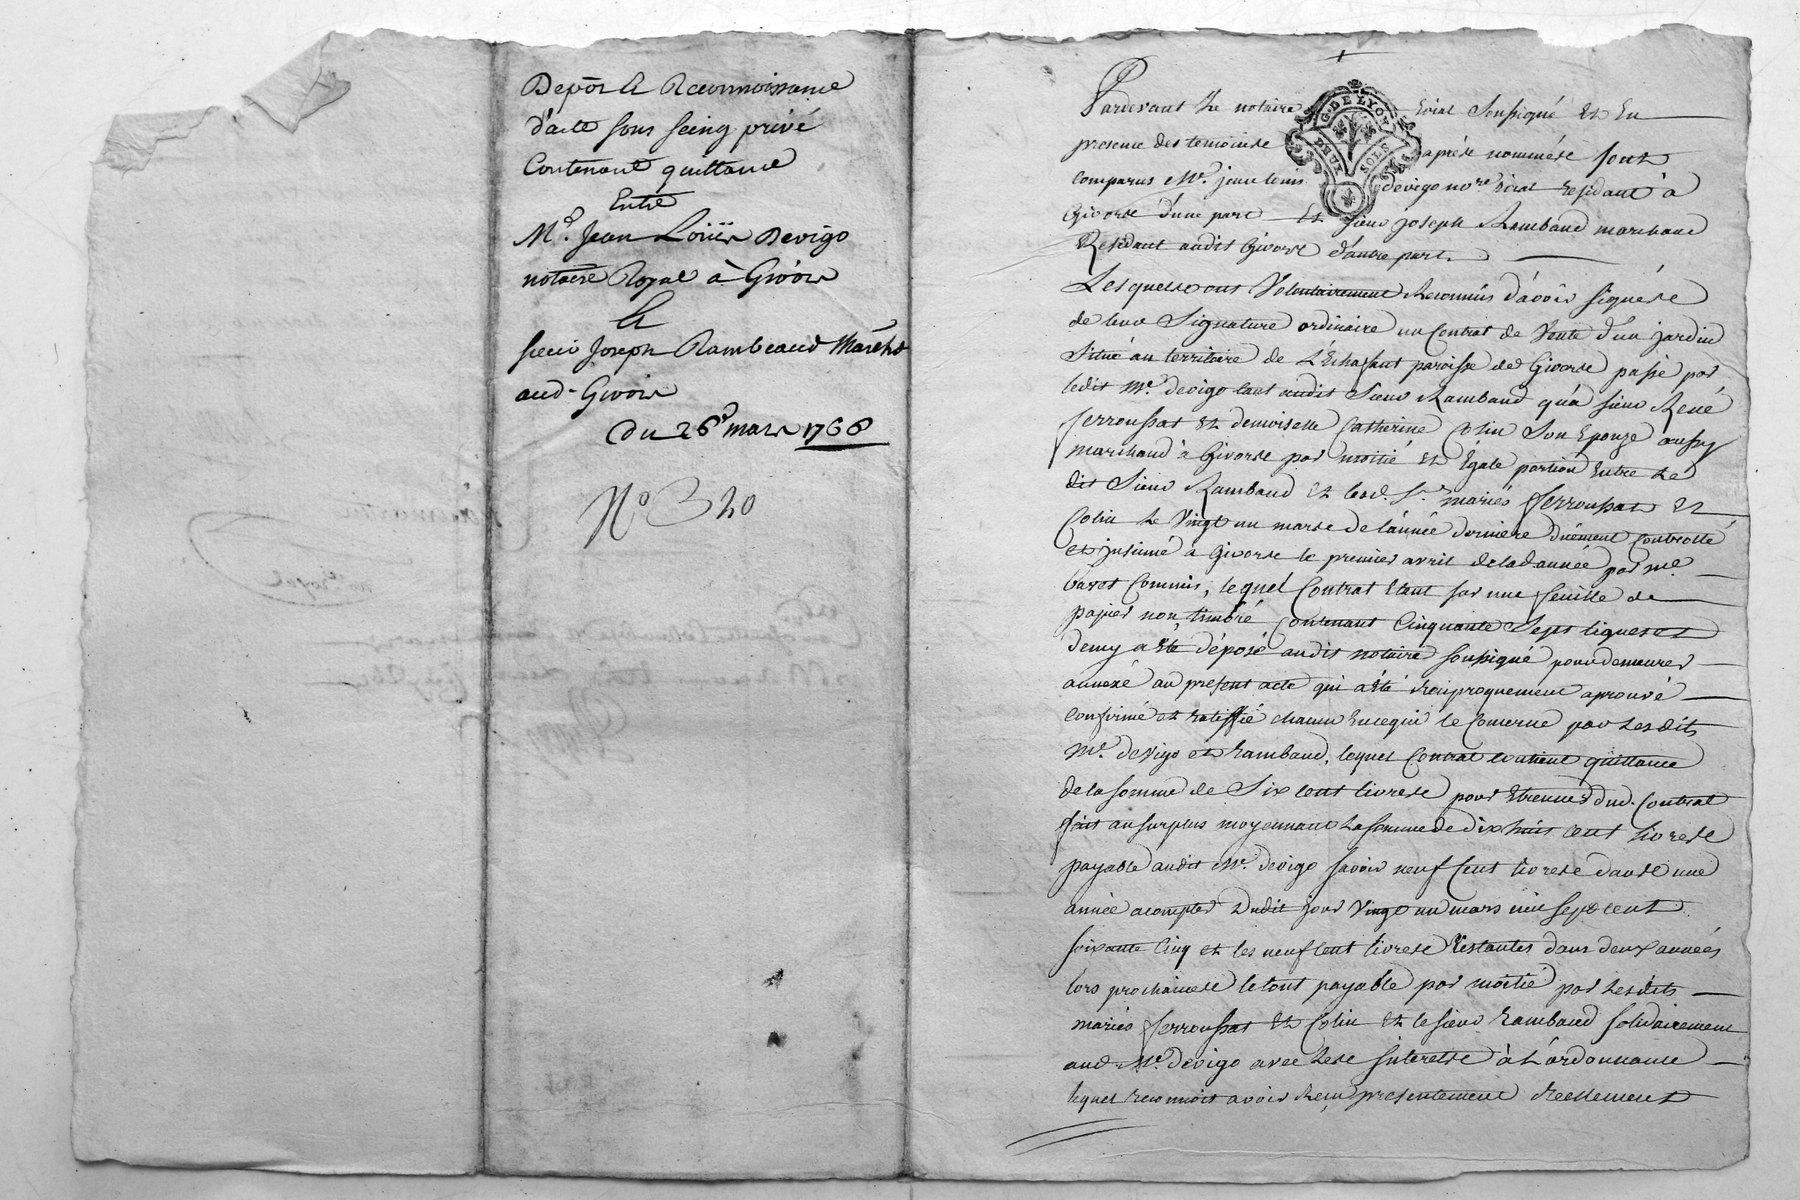 Depôt & Reconnoissance
d'acte sous seing privé
Contenant quittance
Entre
Me. Jean Loüis Devigo
notaire Royal à Givors
&
sieur Joseph Rambeaud Marchd
aud. Givors
Du 26e mars 1766
No 320
Pardevant Le notaire Roial soussigné Et En
presence des temoinse aprése nommése sont
comparus Me. jean louis devigo nore. roial residant à
Givorse d'une part Et sieur joseph Rambaud marchand
Residant audit Givorse d'autre part.
Lesquelse ont Volontairement Reconnus d'avoir signése
de leur Signature ordinaire un Contrat de Vente d'un jardin
Situé au territoire de L'Echassant paroisse de Givorse passé par
ledit Me. devigo tant audit Sieur Rambaud qu'a sieur René
ferroussat Et demoiselle Catherine Colin Son Epouze aussy
marchand à Givorse par moitié et Egale portion Entre Le
dit Sieur Rambaud Et lesd. Sr. mariés ferroussat Et
Colin Le Vingt un marse de l'année derniere duëment Controllé
et insinué à Givorse le premier avril de lad année par me.
baret Commis, lequel Contrat Etant sur une feuille de
papier non timbré Contenant Cinquante Sept lignes et
demy a Eté déposé audit notaire soussigné pour demeurer
annexé au present acte qui a été Reciproquement aprouvé
confirmé et ratiffié chacun En ce qui le Concerne par Lesdits
Me. devigo et Rambaud, lequel Contrat Contient quittance
de la somme de Six Cent livrese pour Etrennes dud. Contrat
fait au surplus moyennant La somme de dix huit cent livrese
payable audit Me. devigo savoir neuf Cent livrese danse une
année acompter Dudit jour Vingt un mars mil sept cent
soixante Cinq et les neuf Cent livrese Restantes dans deux années
lors prochainese le tout payable par moitié par Lesdits
mariés ferroussat Et Colin Et le sieur Rambaud solidairement
aud. Me. devigo avec Lese interetse à L'ordonnance
lequel reconnoit avoir Reçu presentement Reellement
G. DE LYON
DEUX SOLS